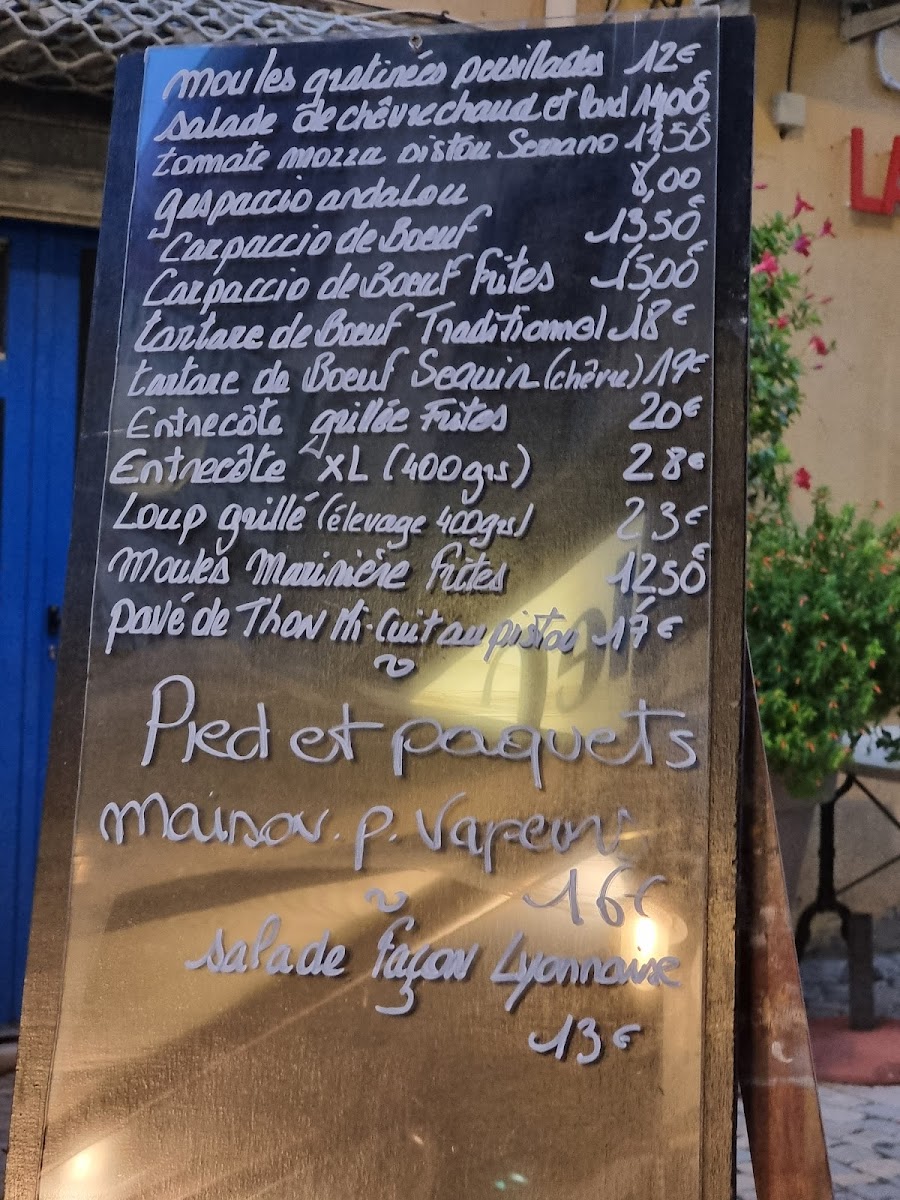 moules gratinées persillades 12€
salade de chêvre chaud et lard 14,00€
tomate mozza pistou Serrano 1150€
gaspaccio andalou 8,00
Carpaccio de Boeuf 13,50€
Carpaccio de Boeuf Frites 15,00€
tartare de Boeuf Traditionnel 18€
tartare de Boeuf Seguin (chêvre) 19€
Entrecôte grillée Frites 20€
Entrecôte XL (400grs) 28€
Loup grillé (élevage 400grs) 23€
Moules Marinière Frites 12,50€
pavé de Thon Mi-Cuit au pistou 17€
~
Pied et paquets
maison. p. Vapeurs
~ 16€
salade façon Lyonnaise
13€
LA